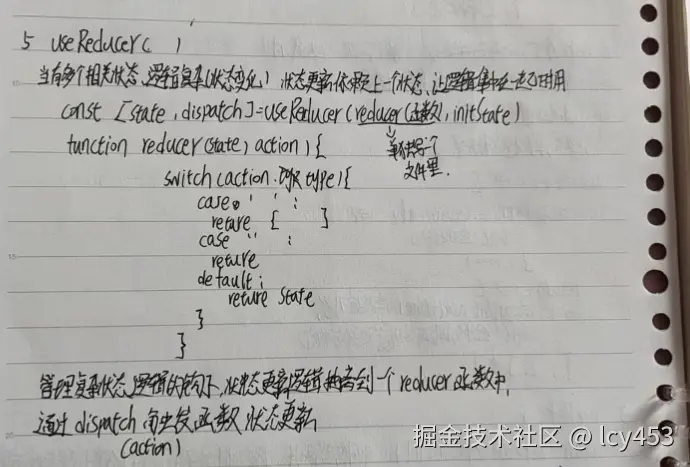 5 useReducer( )
当有多个相关状态,逻辑复杂(状态变化) 状态更新依赖上一个状态,让逻辑集中在一起时用
const [state,dispatch]=useReducer(reducer(函数),initState)
function reducer(state,action){
文件里.
switch(action.type){
case ' ' :
reture { }
case '' :
reture
default:
reture state
}
}
管理复杂状态逻辑的钩子,状态更新逻辑 到一个reducer函数中,
通过dispatch 函数,状态更新
(action)
掘金技术社区 @ lcy453